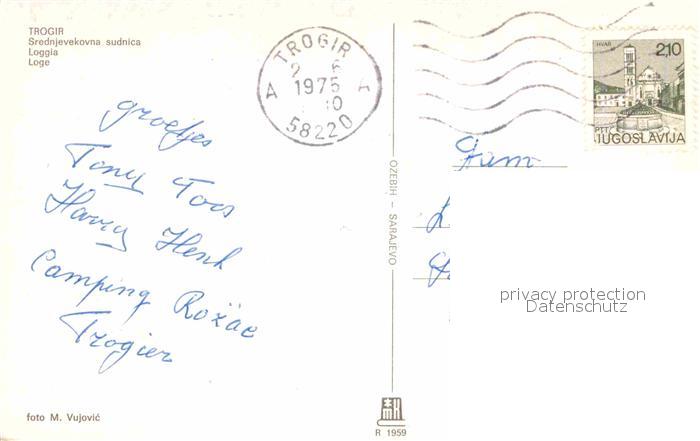 TROGIR
Srednjevekovna sudnica
Loggia
Loge
TROGIR
2 6
1975
A A
10
58220
HVAR
2,10
PTT
JUGOSLAVIJA
groetjes
Tony Toos
Harry Henk
Camping Rožac
Trogier
OZEBIH – SARAJEVO
Fam
privacy protection
Datenschutz
foto M. Vujović
R 1959